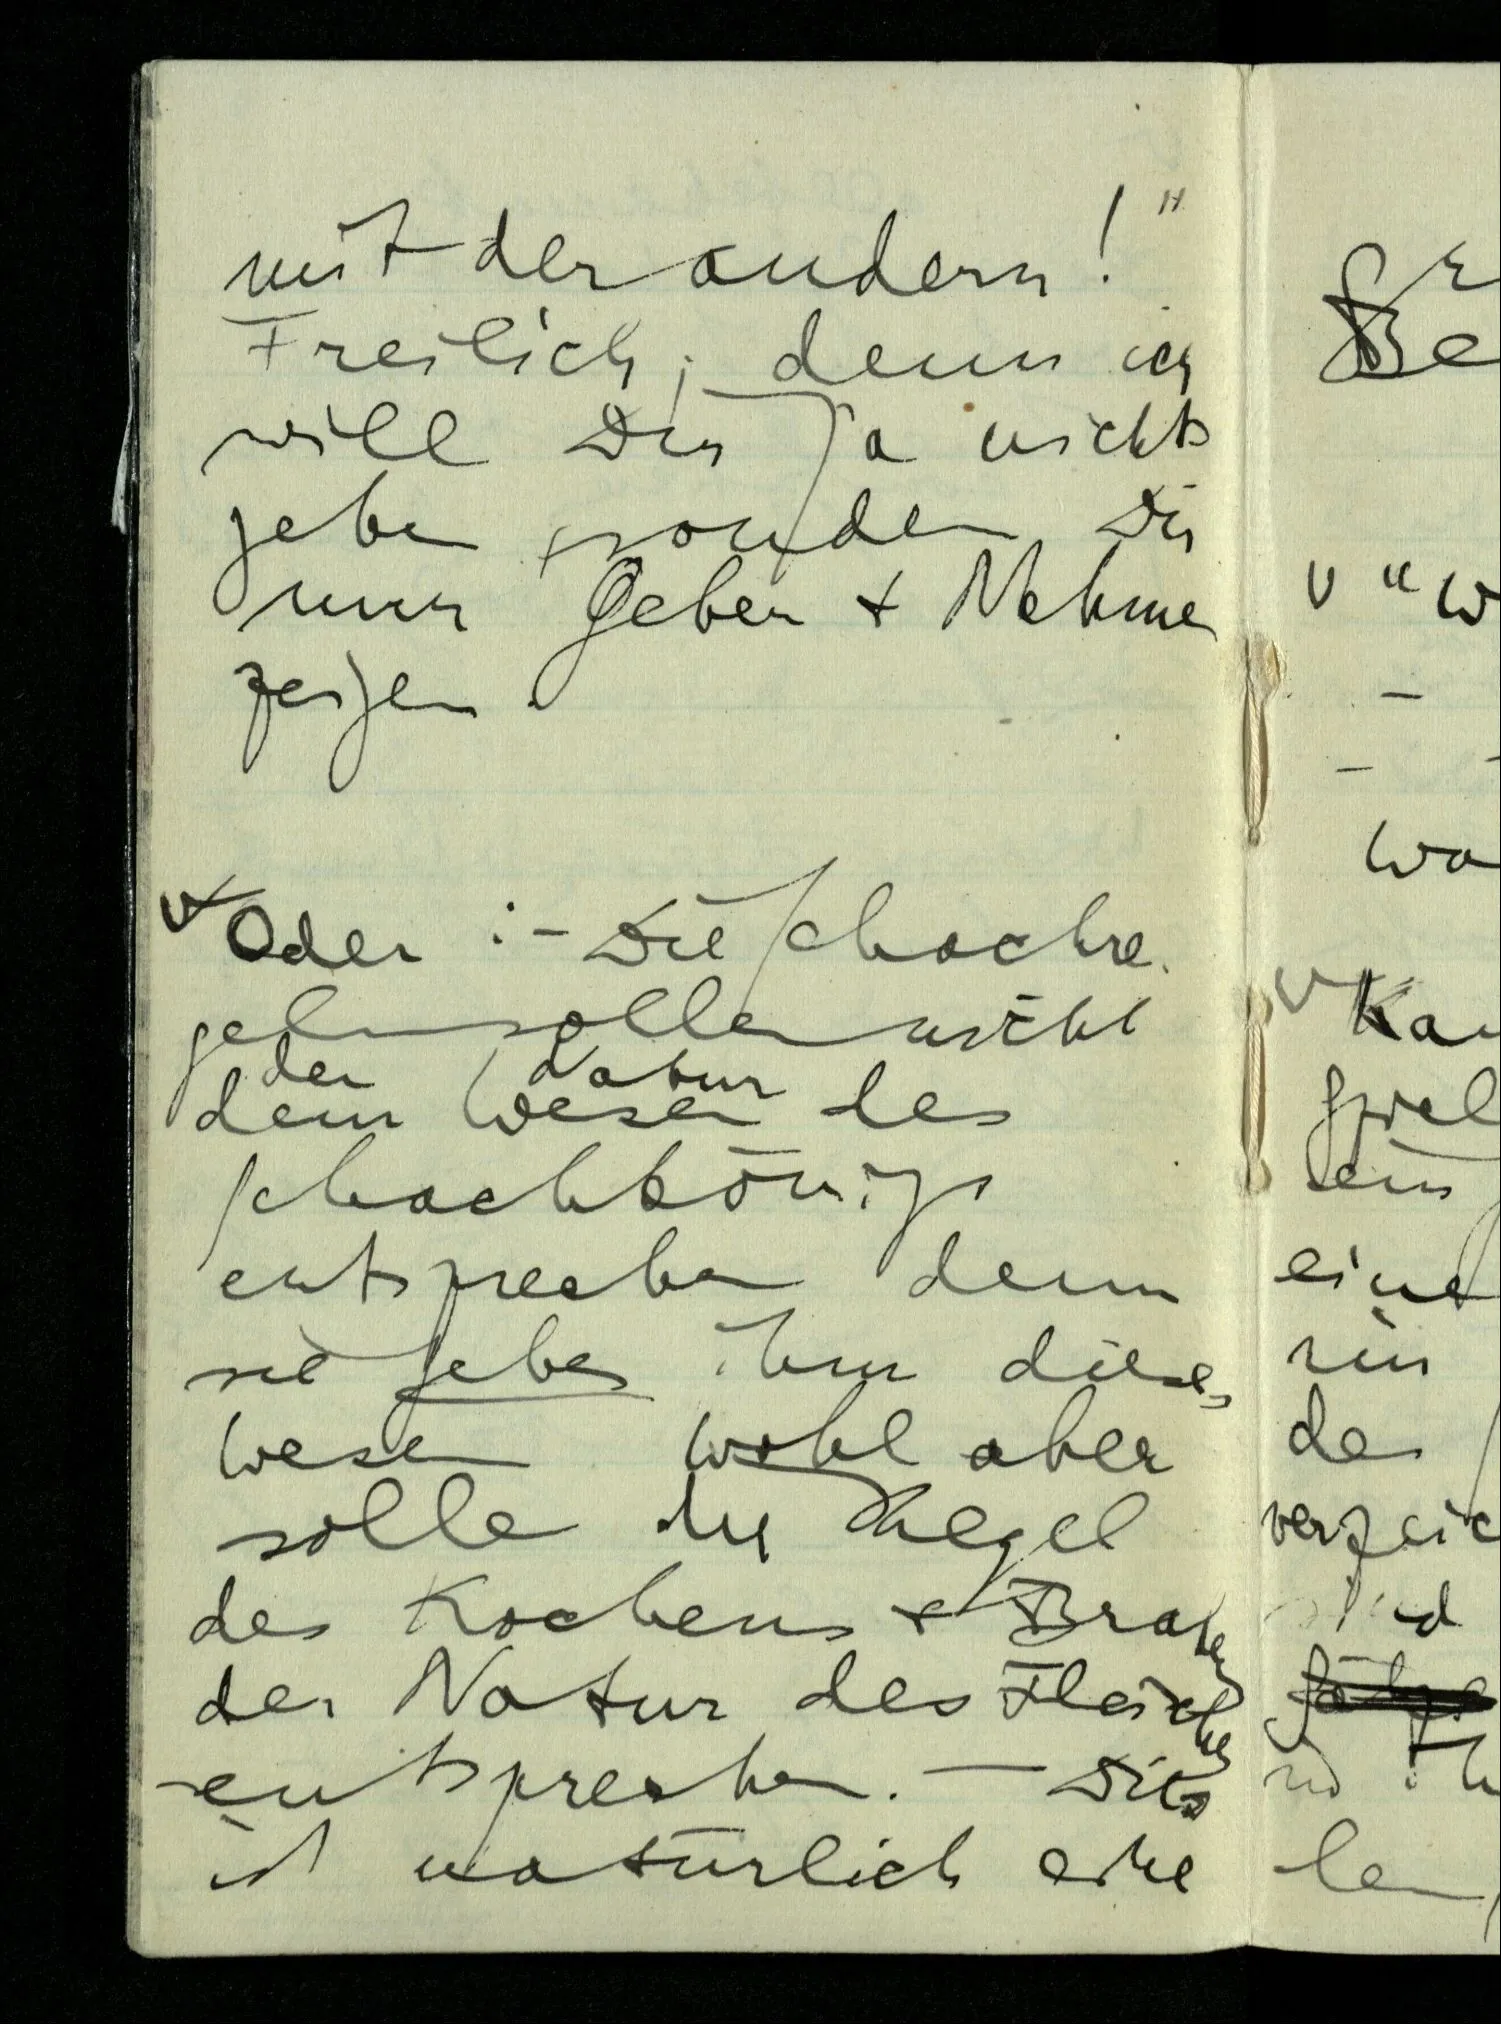 mit der andern!"
Freilich; denn ich
will Dir ja nichts
geben sondern Dir
nur Geben + Nehmen
zeigen.
Oder :– Die Schachre-
geln sollen nicht
der Natur
dem Wesen des
Schachkönigs
entsprechen denn
sie geben ihm dieses
Wesen wohl aber
sollen die Regeln
des Kochens + Bratens
der Natur des Fleisches
entsprechen. – Dies
ist natürlich eine